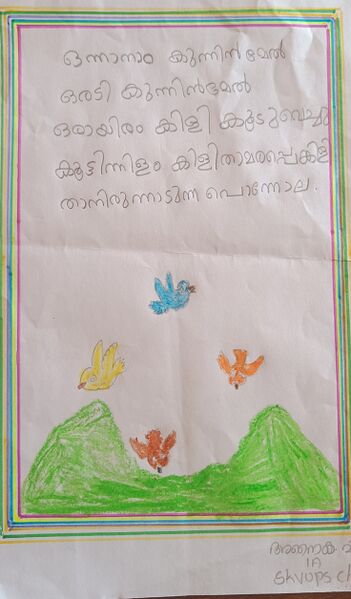 ഒന്നാനാം കുന്നിൻമേൽ
ഒരടി കുന്നിൻമേൽ
ഒരായിരം കിളി കൂടുവെച്ചു
കൂട്ടിന്നിളം കിളിതാമരപ്പെങ്കിളി
താനിരുന്നാടുന്ന പൊന്നോല.
1A
GKVUPS